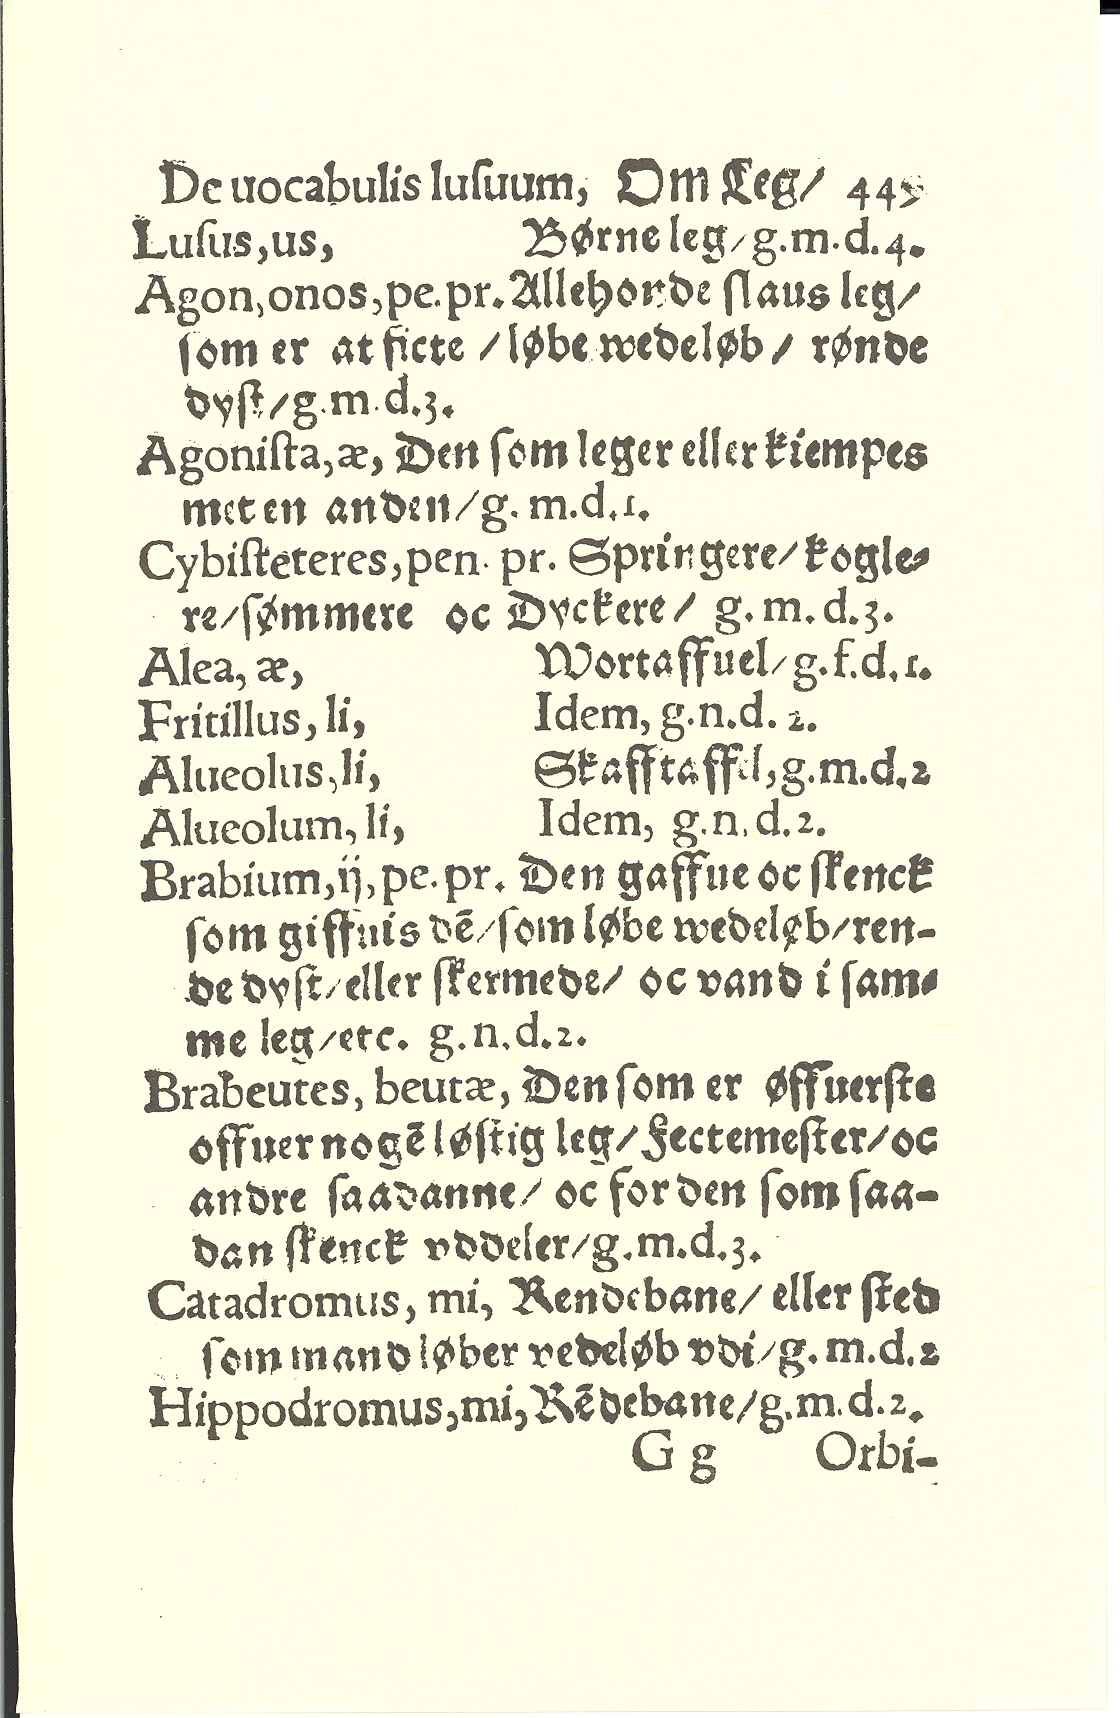 De uocabulis luſuum, Om Leg/ 445
Luſus,us, Børne leg/g.m.d.4.
Agon,onos,pe.pr. Allehonde ſlaus leg/
ſom er at ficte /løbe wedeløb/ rønde
dyſt/g.m.d.3.
Agoniſta,æ, Den ſom leger eller kiempes
met en anden/g.m.d.1.
Cybiſteteres,pen.pr. Springere/kogle⸗
re/ſømmere oc Dyckere/ g.m.d.3.
Alea,æ, Wortaffuel/g.f.d.1.
Fritillus,li, Idem, g.n.d.2.
Alueolus,li, Skafftaffel,g.m.d.2
Alueolum,li, Idem, g.n.d.2.
Brabium,ij,pe.pr. Den gaffue oc ſkenck
ſom giffuis dē/ſom løbe wedeløb/ren-
de dyſt/eller ſkermede/ oc vand i ſam⸗
me leg/etc. g.n.d.2.
Brabeutes, beutæ, Den ſom er øffuerſte
offuer nogē løſtig leg/Fectemeſter/oc
andre ſaadanne/ oc for den ſom ſaa-
dan ſkenck vddeler/g.m.d.3.
Catadromus, mi, Rendebane/ eller ſted
ſom mand løber vedeløb vdi/g.m.d.2
Hippodromus,mi,Rēdebane/g.m.d.2.
G g Orbi-